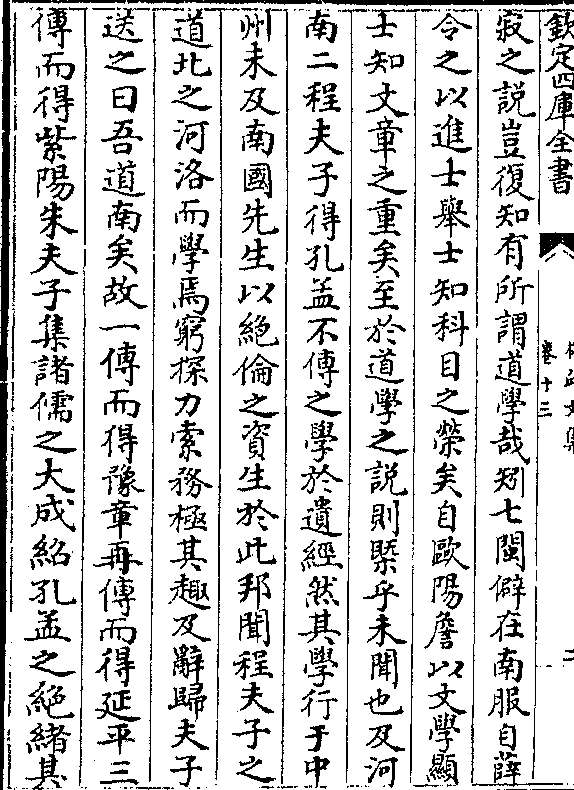 欽定四庫全書
文集
卷十三
二
寂之說豈復知有所謂道學哉矧七閩僻在南服自薛
令之以進士舉士知科目之榮矣自歐陽詹以文學顯
士知文章之重矣至於道學之說則槩乎未聞也及河
南二程夫子得孔孟不傳之學於遺經然其學行于中
州未及南國先生以絶倫之資生於此邦聞程夫子之
道北之河洛而學焉窮探力索務極其趣及辭歸夫子
送之曰吾道南矣故一傳而得豫章再傳而得延平三
傳而得紫陽朱夫子集諸儒之大成紹孔孟之絶緒其